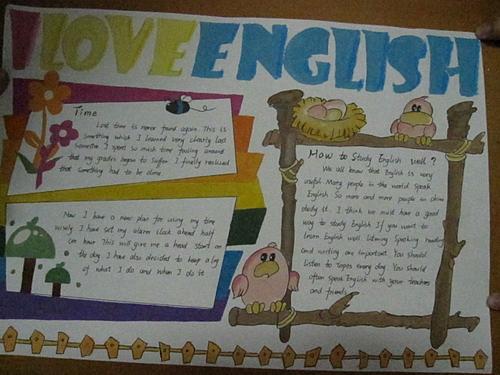 I LOVE ENGLISH
Time
Lost time is never found again. This is
something which I learned very clearly last
semester. I spent so much time fooling around
that my grades began to suffer. I finally realized
that something had to be done.
Now I have a new plan for using my time
wisely. I have set my alarm clock ahead half
an hour. This will give me a head start on
the day. I have also decided to keep a log
of what I do and when I do it
How to Study English well?
We all know that English is very
useful. Many people in the world speak
English. So more and more people in china
study it. I think we must have a good
way to study English. If you want to
learn English well. listening. Speaking. reading
and writing are important. You should
listen to tapes every day. You should
often speak English with your teachers
and friends.